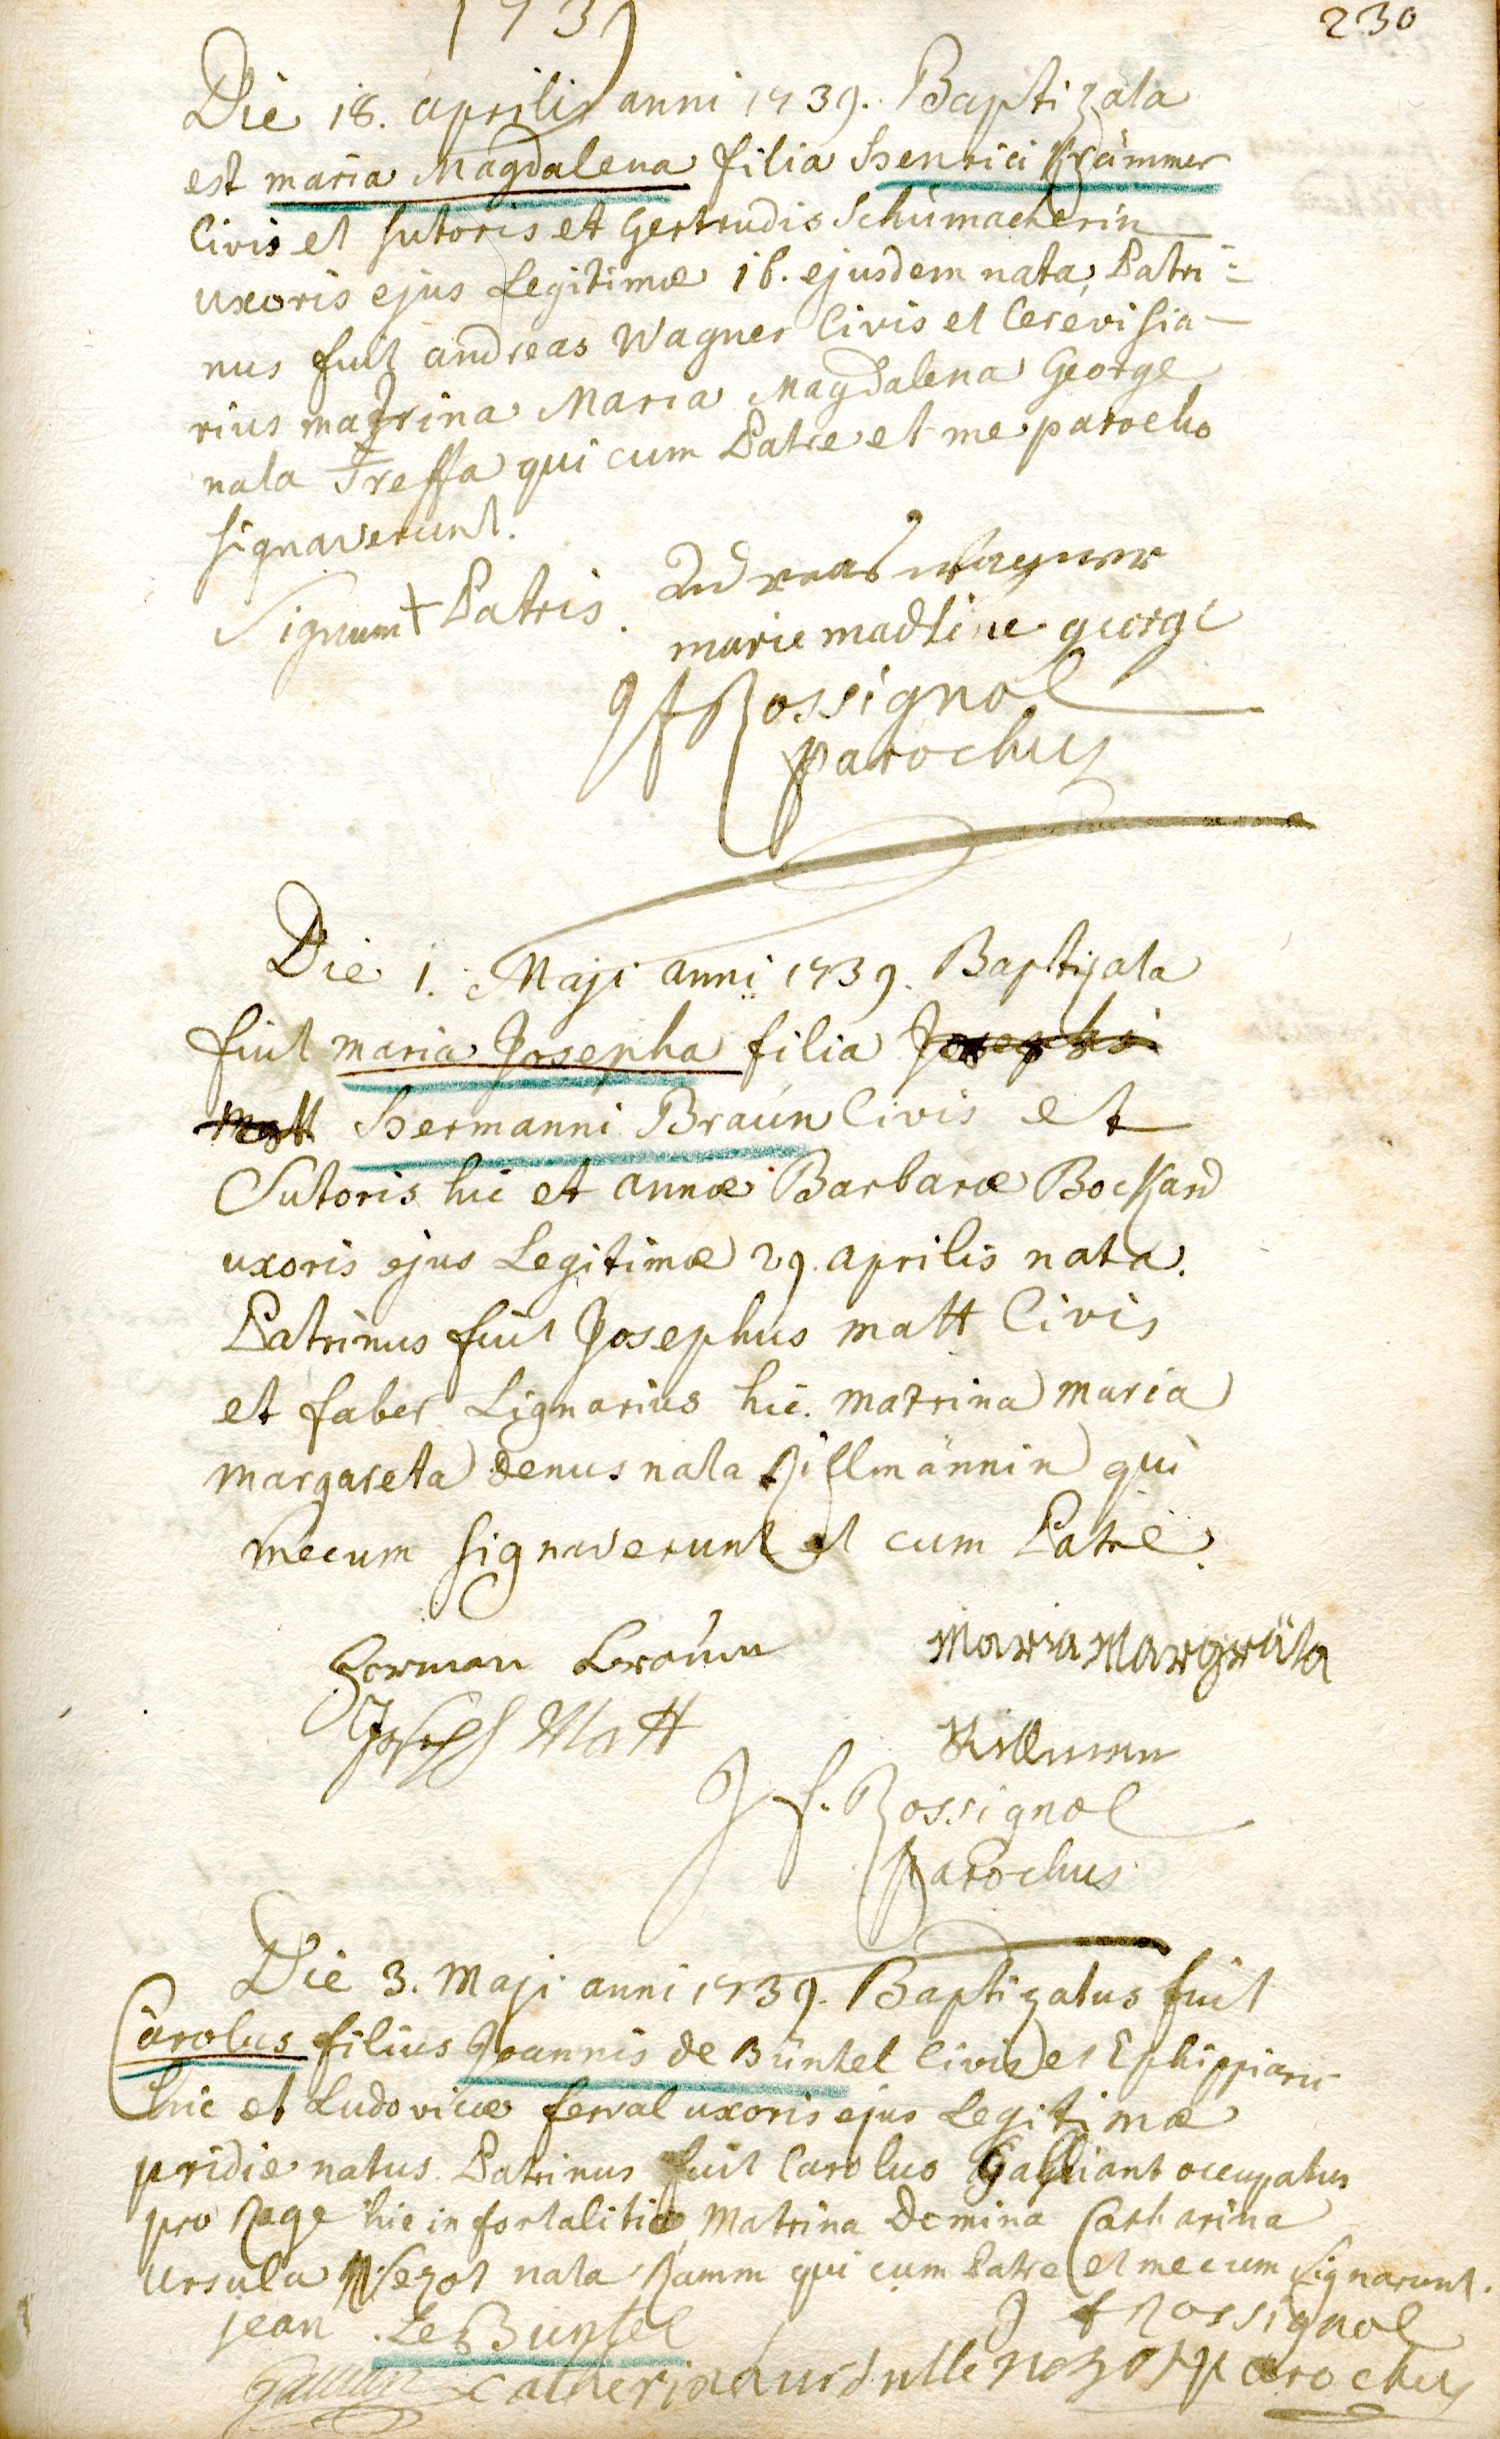 1739
230
Die 18. aprilis anni 1739. Baptizata
est maria Magdalena filia Henrici Krämmer
Civis et sutoris et Gertrudis Schúmacherin
uxoris ejus Legitimæ 16. ejusdem nata, Patri=
nus fuit andreas Wagner Civis et Cerevisia-
rius matrina Maria Magdalena George
nata Treffa qui cum Patre et me parocho
signaverunt.
Signum + Patris.
Andreas Wagner
marie madline george
J f Rossignol
parochus
Die 1. Maji anni 1739. Baptizata
fuit maria Josepha filia Josephi
Matt Hermanni Braún Civis et
Sutoris hic et annæ Barbaræ Bockard
uxoris ejus Legitimæ 29. aprilis nata.
Patrinus fuit Josephus matt Civis
et faber Lignarius hic. matrina maria
margareta denus nata Killmännin qui
mecum signaverunt et cum Patre.
Herman Braún
Maria Margräta
Joseph Matt
Killman
J f. Rossignol
parochus
Die 3. Maji anni 1739. Baptizatus fuit
Carolus filius Joannis de Büntel Civis et Ephippiarii
hic et Ludovicæ ferval uxoris ejus Legitimæ
pridie natus. Patrinus fuit Carolus Galliant occupatus
pro Rege hic in fortalitio, Matrina Domina Catharina
Ursula Nezot nata Kamm qui cum Patre et mecum signarunt.
jean Le Buntel
J f Rossignol
Catherine nursulle Nezot parochus